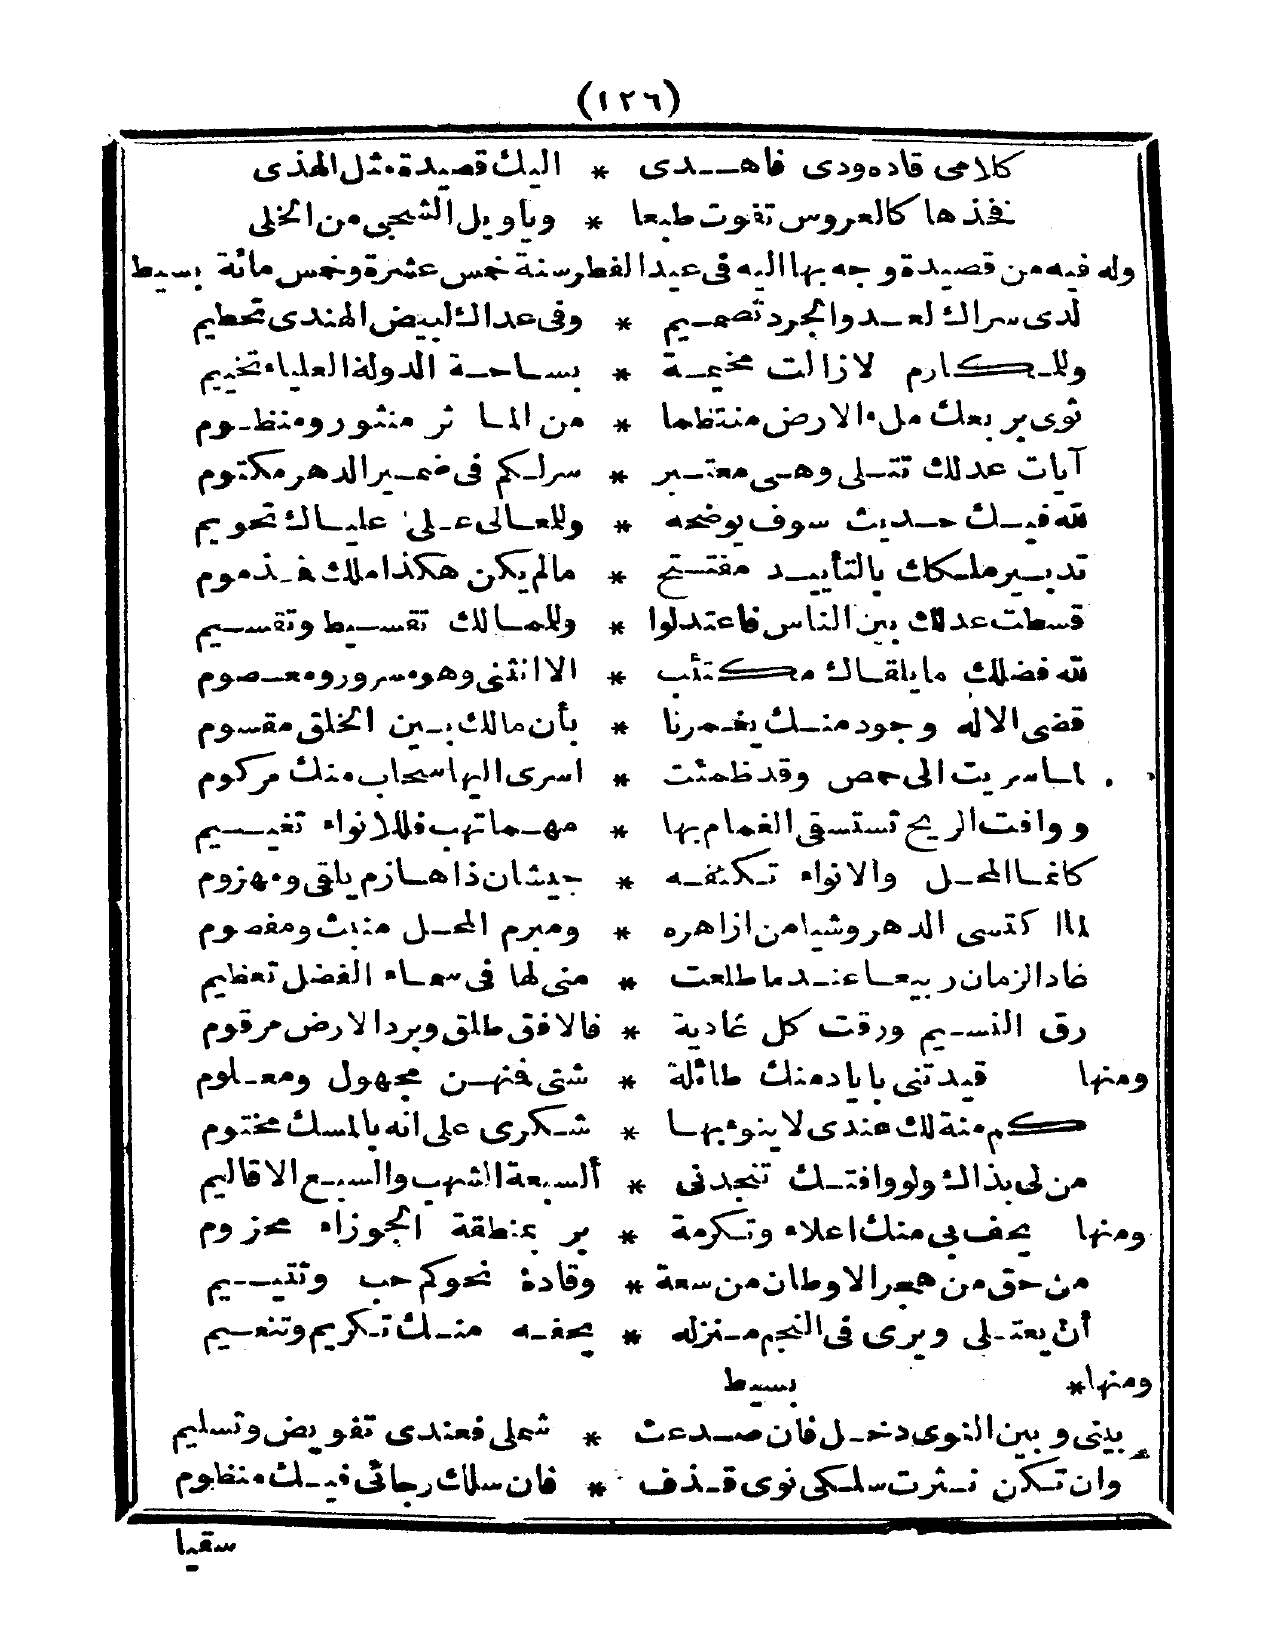 (١٢٦)
كلامى قاده ودى فاهــدى * اليك قصيدة مثل الهذى
فخذها كالعروس تفوت طبعا * وياويل الشجى من الخلى
وله فيه من قصيدة وجه بها اليه فى عيد الفطر سنة خمس عشرة وخمس مائة بسيط
لدى سراك لعــد والجرد تصميـم * وفى عداك لبيض الهندى تحطيم
وللـكارم لازالت مخيمـة * بساحـة الدولة العلياء تخييم
ثوى بربعك ملء الارض منتظما * من المـآثر منثور ومنظـوم
آيات عدلك تتـلى وهـى معتـبر * سرلـكم فى ضمـير الدهر مكتوم
لله فيـك حـديث سوف يوضحه * وللعـالى عـلى عليـاك تحويم
تدبـير ملـكك بالتأييـد مفتـتح * مالم يكن هكذا ملك فـذموم
قسطت عدلك بين الناس فاعتدلوا * وللمـالك تقسـيط وتقسـيم
لله فضلك ما يلقـاك مكتئب * الا انثنى وهو مسرور ومعـصوم
قضى الاله وجود منـك يغـمرنا * بأن مالك بـين الخلق مقسوم
لما سريت الى حمص وقد ظمئت * اسرى اليها سحاب منك مركوم
ووافت الريح تستسقى الغمام بها * مهـما تهب فللانواء تغيـيم
كانمـا المحـل والانواء تـكنفـه * جيشان ذا هـازم يلقى ومهزوم
لما اكتسى الدهر وشيا من ازاهره * ومبرم المحـل منبث ومفصوم
فاد الزمان ربيعـا عنـد ما طلعت * منى لها فى سمـاء الفضل تعظيم
رق النسـيم ورقت كل غادية * فالافق طلق وبرد الارض مرقوم
ومنها قيدتنى بايادمنك طائلة * شتى فنهـن مجهول ومعـلوم
كم منة لك عندى لا ينوء بهـا * شـكرى على انه بالمسك مختوم
من لى بذاك ولو وافتـك تنجدنى * ألسبعة الشهب والسبـع الاقاليم
ومنها يحف بى منك اعلاء وتـكرمة * بر بمنطقة الجوزاء محزوم
من حق من هجر الاوطان من سعة * وقادة نحوكم حب وتتيـيم
أن يعتـلى ويرى فى النجم مـنزله * يحفـه منـك تـكريم وتنعـيم
ومنها * بسيط
بينى وبين النوى دخـل فان صـدعت * شملى فعندى تفويض وتسليم
وان تـكن نـثرت سلـكى نوى قـذف * فان سلك رجائى فيـك منظوم
سقيا